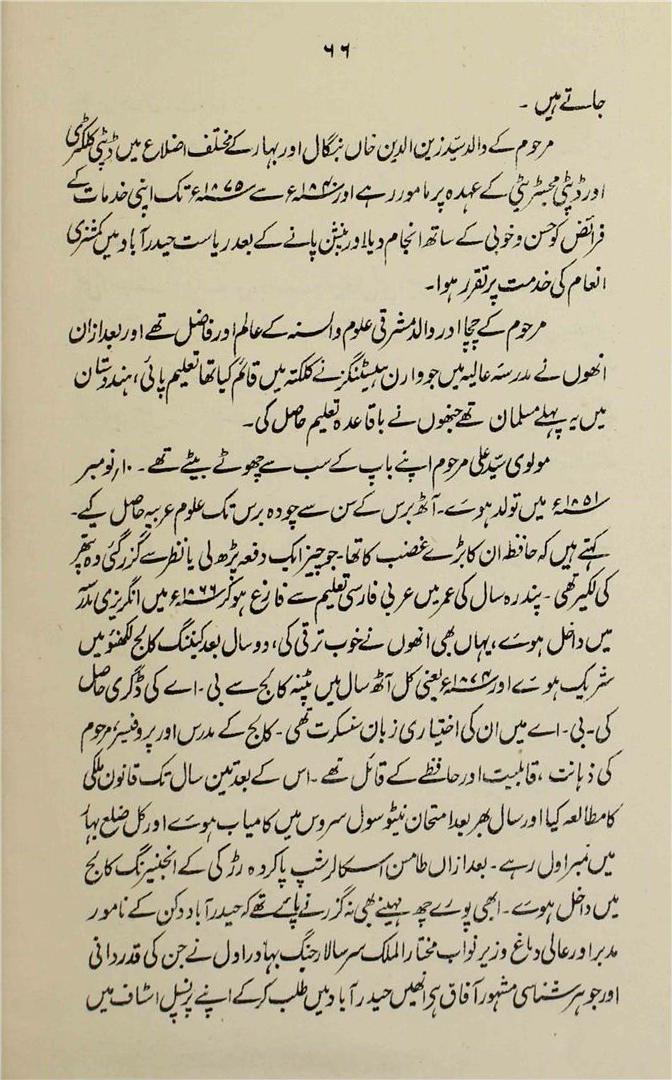 ۶۶
جاتے ہیں ۔
مرحوم کے والد سیّد زین الدین خاں بنگال اور بہار کے مختلف اضلاع میں ڈپٹی کلکٹری
اور ڈپٹی مجسٹریٹی کے عہدہ پر مامور رہے اور ۱۸۴۰ء سے ۱۸۷۵ء تک اپنی خدمات کے
فرائض کو حسن و خوبی کے ساتھ انجام دیا اور پنشن پانے کے بعد ریاست حیدرآباد میں کمشنری
انعام کی خدمت پر تقرر ہوا۔
مرحوم کے چچا اور والد مشرقی علوم و السنہ کے عالم اور فاضل تھے اور بعد ازاں
انھوں نے مدرسہ عالیہ میں جو وارن ہیسٹنگز نے کلکتہ میں قائم کیا تھا تعلیم پائی، ہندستان
میں یہ پہلے مسلمان تھے جنھوں نے باقاعدہ تعلیم حاصل کی۔
مولوی سیّد علی مرحوم اپنے باپ کے سب سے چھوٹے بیٹے تھے ۔ ۱۰ نومبر
۱۸۵۱ء میں تولد ہوے۔ آٹھ برس کے سن سے چودہ برس تک علوم عربیہ حاصل کیے۔
کہتے ہیں کہ حافظہ ان کا بڑے غضب کا تھا۔ جو چیز ایک دفعہ پڑھ لی یا نظر سے گزر گئی وہ پتھر
کی لکیر تھی ۔ پندرہ سال کی عمر میں عربی فارسی تعلیم سے فارغ ہو کر ۱۸۶۶ء میں انگریزی مدرسہ
میں داخل ہوے، یہاں بھی انھوں نے خوب ترقی کی، دو سال بعد کیننگ کالج لکھنؤ میں
شریک ہوے اور ۱۸۷۴ء یعنی کل آٹھ سال میں پٹنہ کالج سے بی۔اے کی ڈگری حاصل
کی۔ بی۔اے میں ان کی اختیاری زبان سنسکرت تھی۔ کالج کے مدرس اور پروفیسر مرحوم
کی ذہانت ، قابلیت اور حافظے کے قائل تھے ۔ اس کے بعد تین سال تک قانون ملکی
کا مطالعہ کیا اور سال بھر بعد امتحان نیٹو سول سروس میں کامیاب ہوے اور کل ضلع بہار
میں نمبر اول رہے ۔ بعد ازاں طامن اسکالرشپ پا کر وہ رڑکی کے انجنیرنگ کالج
میں داخل ہوے۔ ابھی پورے چھ مہینے بھی نہ گزرنے پائے تھے کہ حیدرآباد دکن کے نامور
مدبر اور عالی دماغ وزیر نواب مختار الملک سر سالار جنگ بہادر اول نے جن کی قدردانی
اور جوہر شناسی مشہور آفاق ہی انھیں حیدرآباد میں طلب کر کے اپنے پرنسپل اسٹاف میں